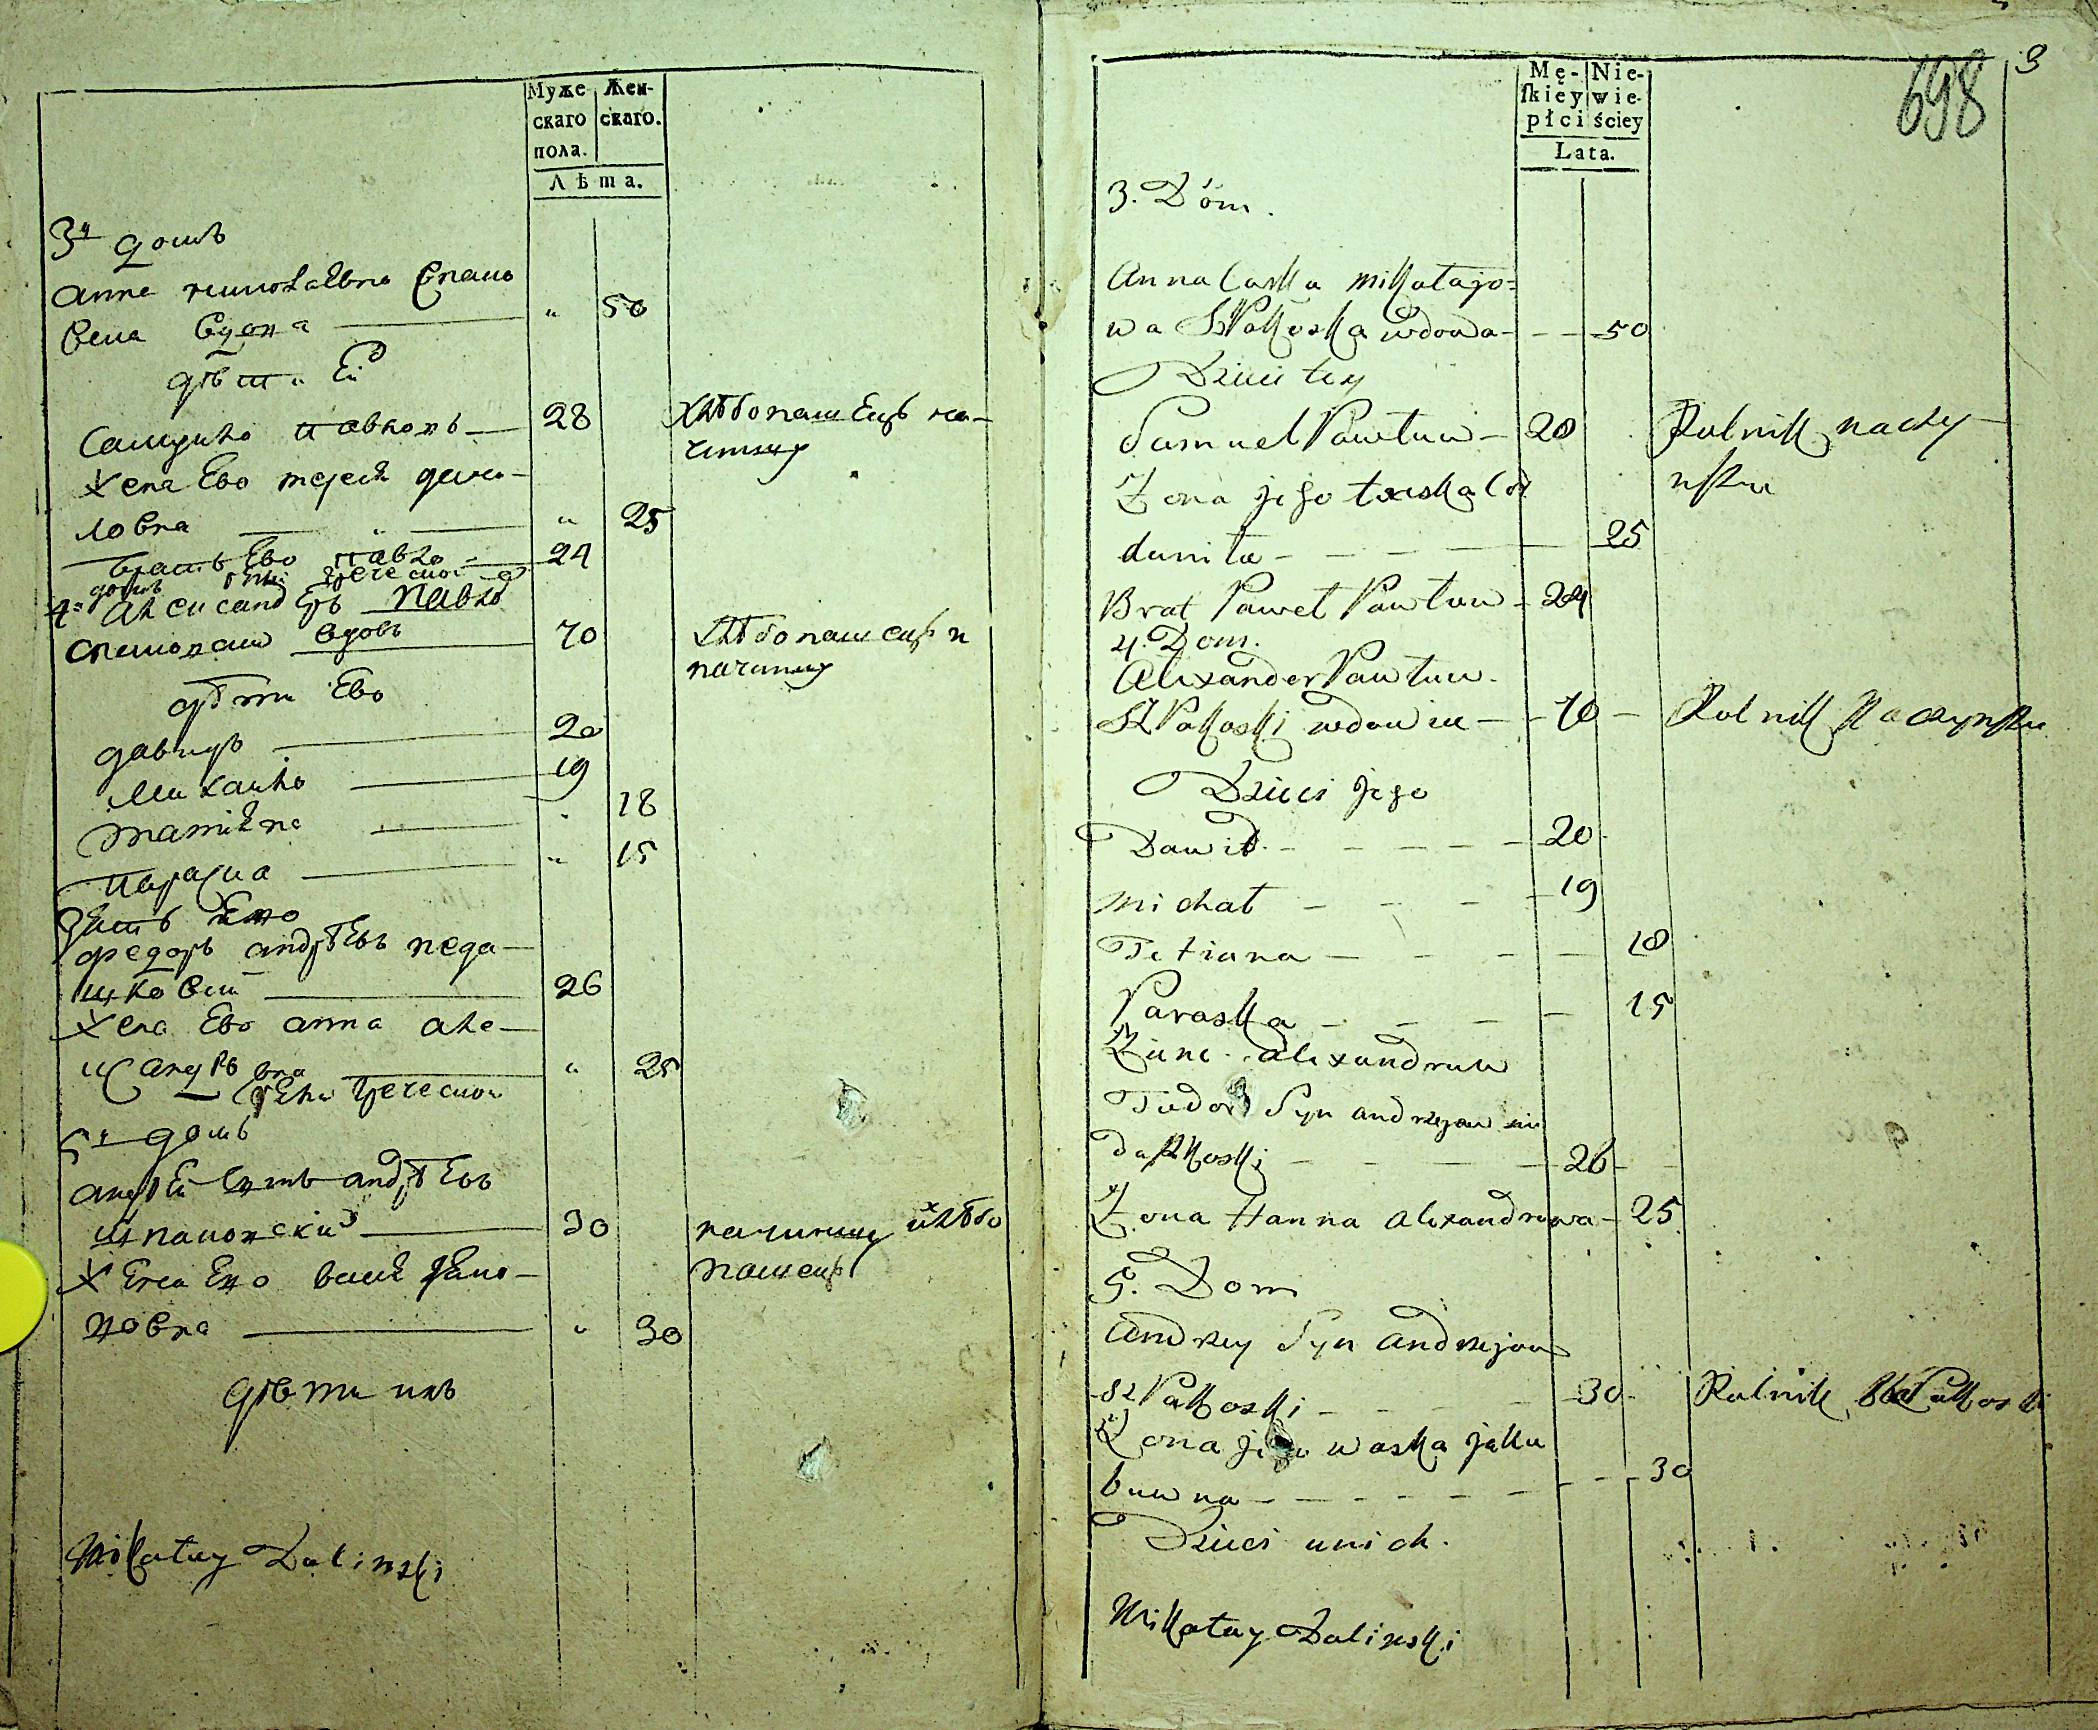 Муже
скаго
пола.
Жен-
скаго.
Лѣта.
3й домъ
Анна
вска вдова — " 50
дѣти Ей
Самуило Павловъ — 28 хлѣбопашецъ на
чиншу
Жена Ево дани-
ловна — " — " 25
братъ Ево Павло — 24
4й домъ греческой
Александръ Павло
вдовъ — 70 хлѣбопашецъ н
начиншу
дѣти Ево
давидъ — 20
Михаило — 19
татиана — " 18
Параска — " 15
Зять Ево
федоръ андрѣевъ неда-
шковски — 26
Жена Ево анна але-
ксандровна — " 25
греческой
5й домъ
андрей сынъ андрѣевъ
шпаковский — 30 начиншу хлѣбо
пашецъ
Жена Ево яко-
вовна — " 30
дѣти ихъ
Mikołay Zalinski
3
698
Mę-
skiey
płci
Nie-
wie-
ściey
Lata.
3. Dóm.
Anna Mikołajo=
wa Szpakoska wdowa — — 50
Dzieci tey
Samuel Pawłuw — 28 Rolnik na czy
nszu
Żona jego
daniła — — — — 25
Brat Paweł Pawłuw — 24
4. Dom.
Alixander Pawłuw
Szpakoski wdowiec — 70 — Rolnik na czynszu
Dzieci jego
Dawid — — — — — 20
Michał — — — — 19
Tetiana — — — — — 18
Paraska — — — — — 15
Zienć Alixandruw
Fiodor Syn andrzejow nie
daszkoski — — — — 26
Żona Hanna Alixandrowa — 25
5. Dom
Andrzey Syn Andrzejow
Szpakoski — — — — 30 Rolnik
Żona jego waska jaku
buwna — — — — — — 30
Dzieci u nich.
Mikołay Zalinski